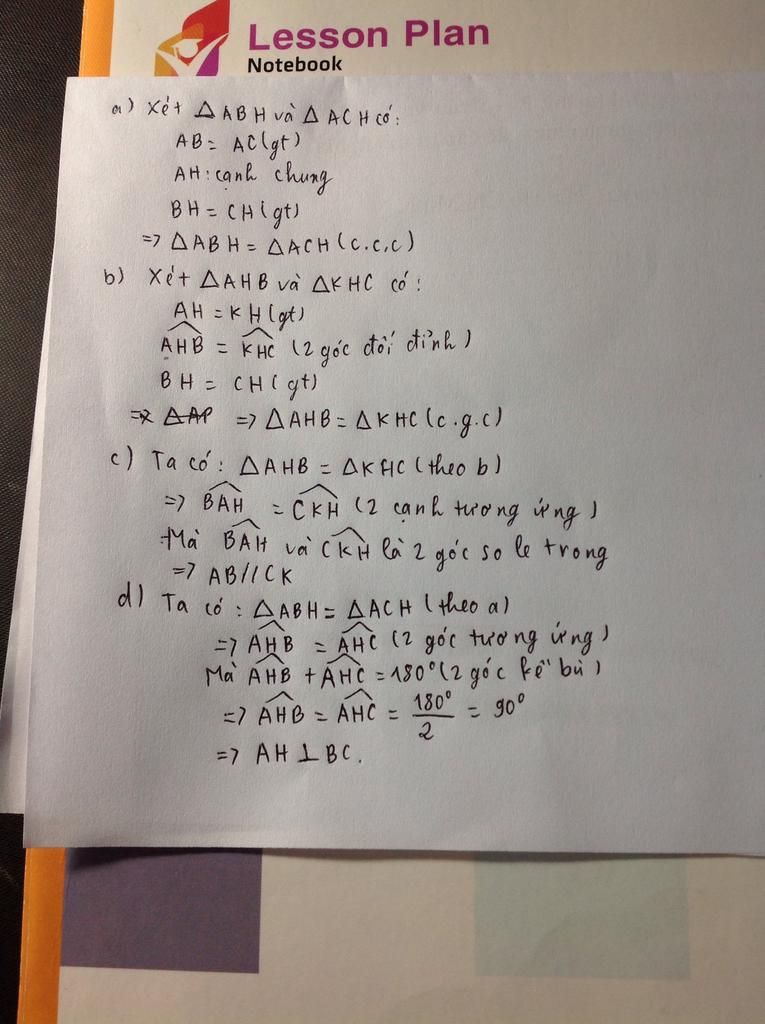 Lesson Plan
Notebook
a) Xét △ABH và △ACH có:
AB = AC(gt)
AH: cạnh chung
BH = CH(gt)
=> △ABH = △ACH (c.c.c)
b) Xét △AHB và △KHC có:
AH = KH(gt)
\widehat{AHB} = \widehat{KHC} (2 góc đối đỉnh)
BH = CH(gt)
=> △AP => △AHB = △KHC (c.g.c)
c) Ta có: △AHB = △KHC (theo b)
=> \widehat{BAH} = \widehat{CKH} (2 cạnh tương ứng)
Mà \widehat{BAH} và \widehat{CKH} là 2 góc so le trong
=> AB // CK
d) Ta có: △ABH = △ACH (theo a)
=> \widehat{AHB} = \widehat{AHC} (2 góc tương ứng)
Mà \widehat{AHB} + \widehat{AHC} = 180° (2 góc kề bù)
=> \widehat{AHB} = \widehat{AHC} = \frac{180°}{2} = 90°
=> AH ⊥ BC.